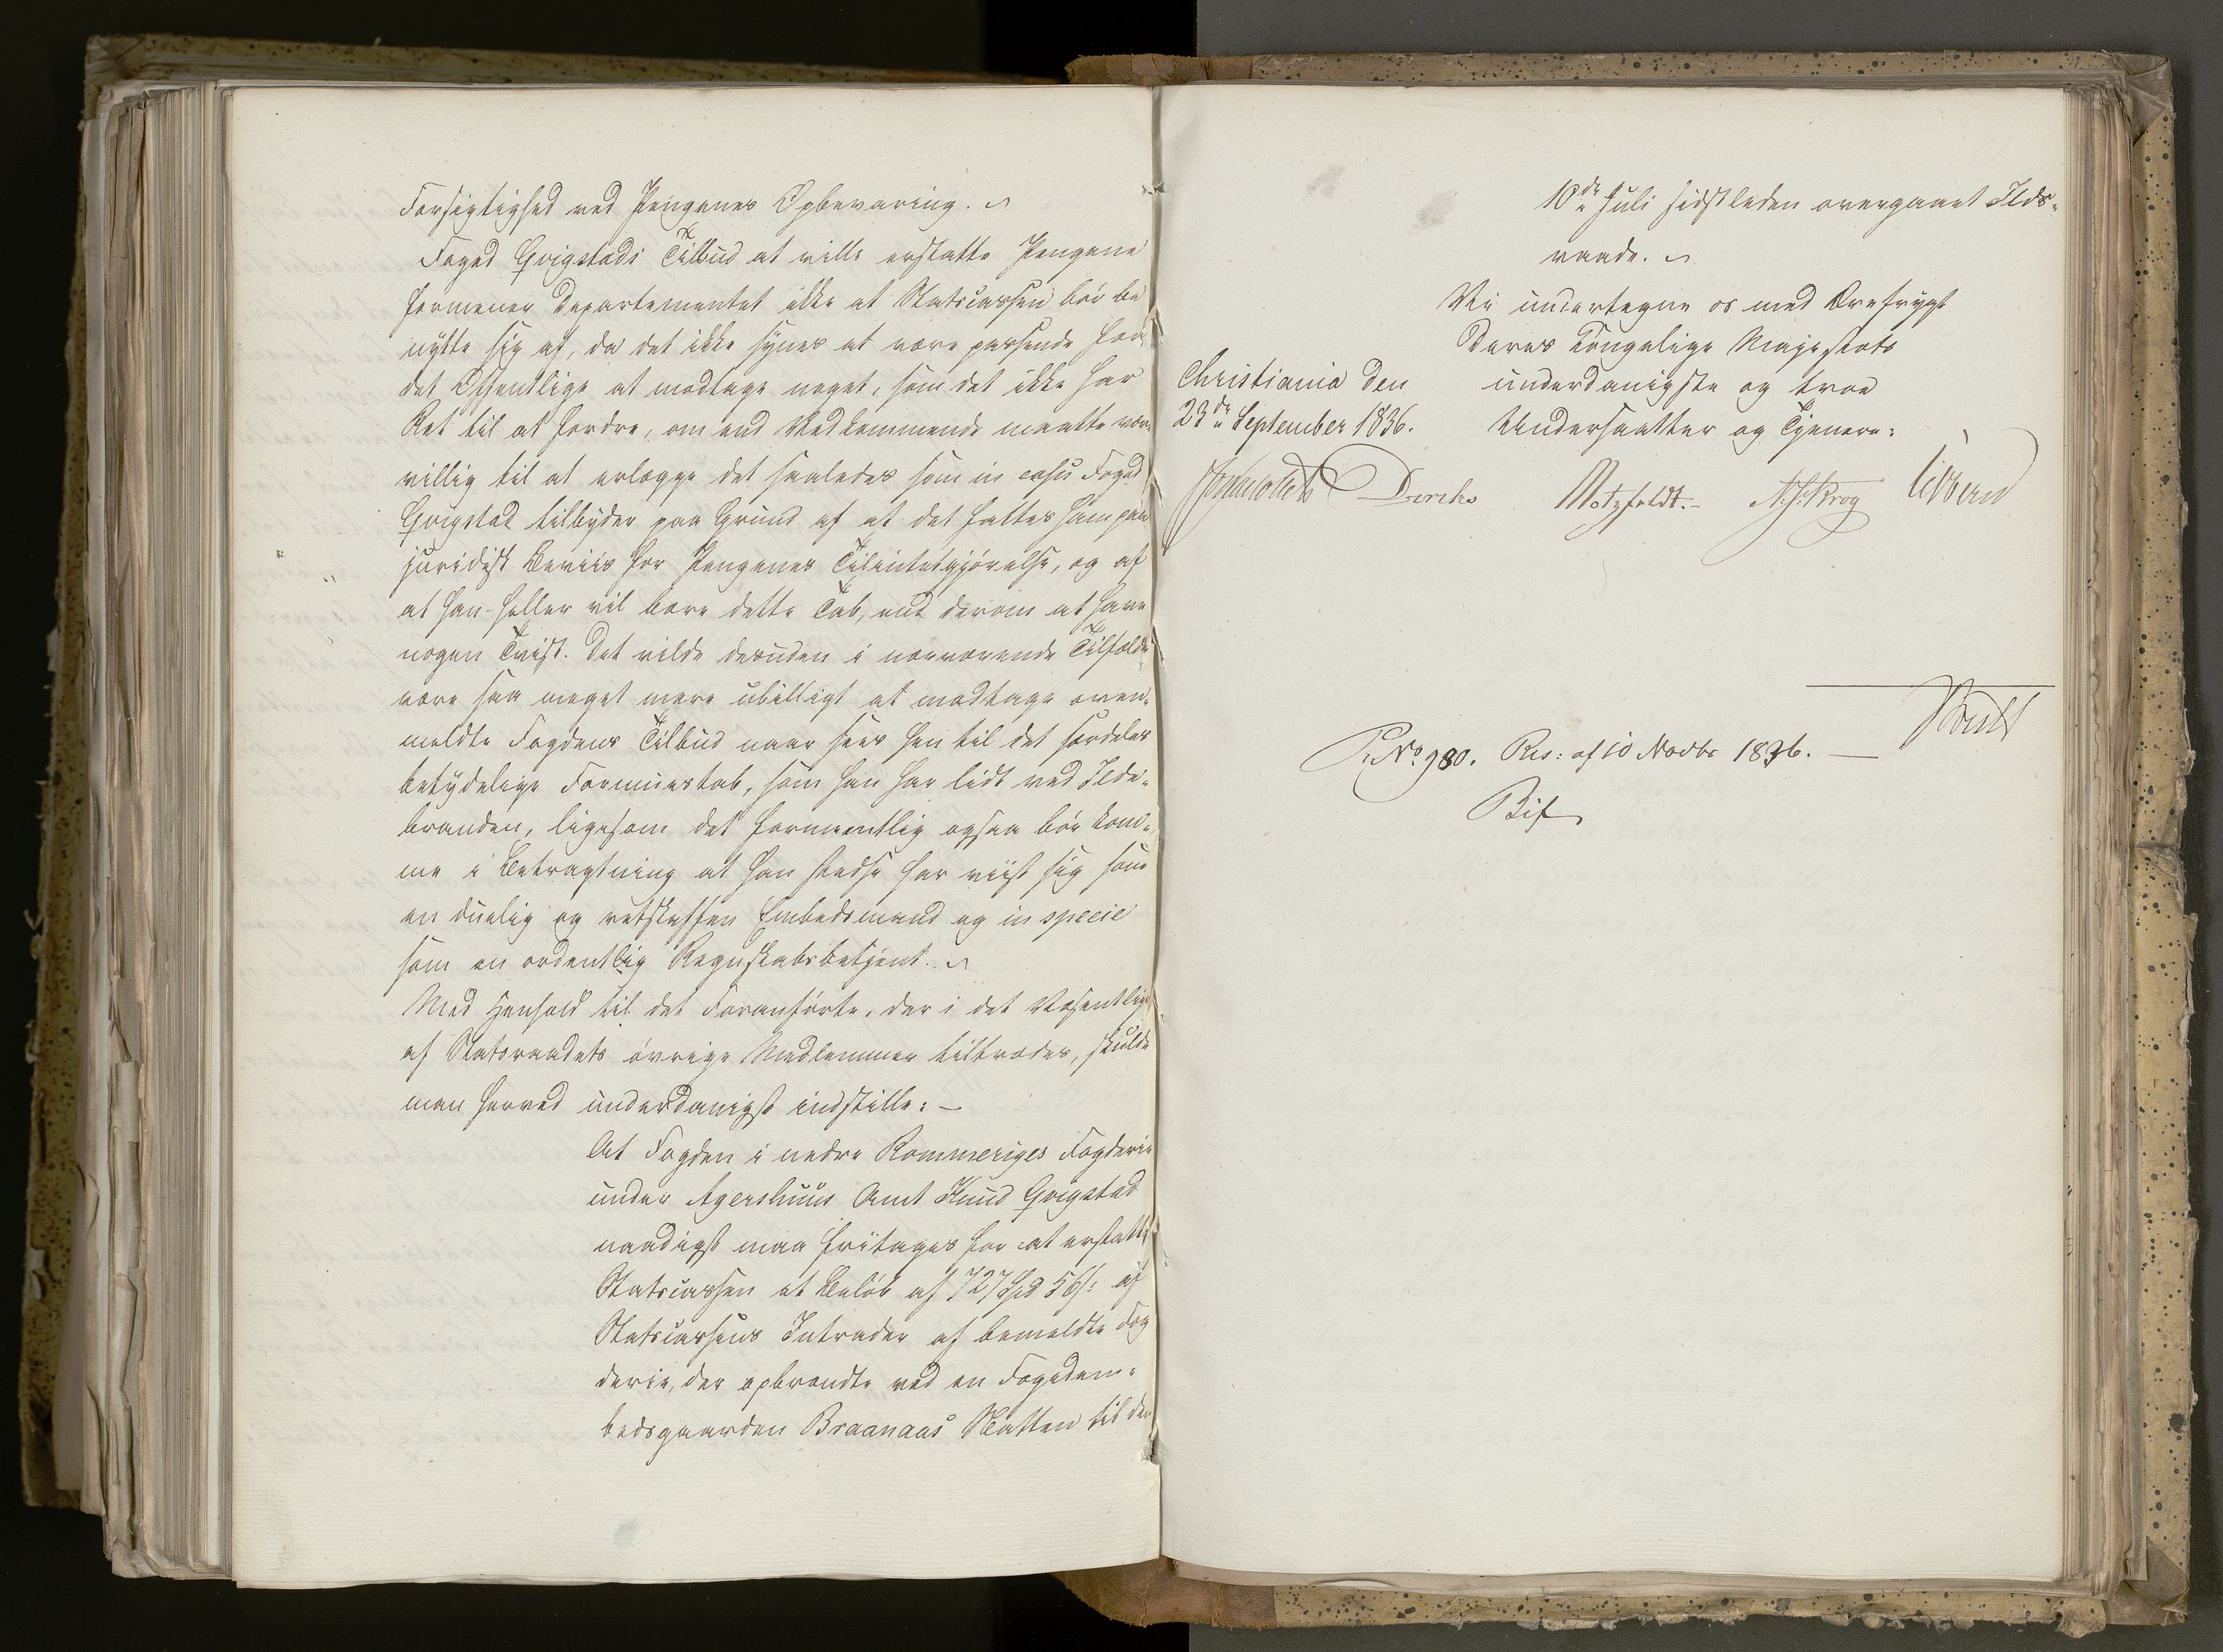 Forsigtighed ved Pengenes Opbevaring.
Foged Gvigstads Tilbud at ville erstatte Pengene
formener Departementet ikke at Statscassen bør be
nytte sig af, da det ikke synes at være passende for
det Offentlige at modtage noget, som det ikke har
Ret til at fordre, om end Vedkommende maatte være
villig til at erlægge det saaledes som in casu Foged
Gvigstad tilbyder paa Grund af at det fattes ham paa
juridisk Beviis for Pengenes Tilintetgjørelse, og af
at han heller vil bære dette Tab, end derom at have
nogen Tvist. Det vilde desuden i nærværende Tilfælde
være saa meget mere ubilligt at modtage oven-
meldte Fogdens Tilbud naar sees hen til det særdeles
betydelige Formuestab, som han har lidt ved Ilde-
branden, ligesom det formeentlig ogsaa bør kom-
me i Betragtning at han stedse har viist sig som
en duelig og retskaffen Embedsmand og in specie
som en ordentlig Regnskabsbetjent.
Med Henhold til det Foranførte, der i det Væsentlige
af Statsraadets øvrige Medlemmer tiltrædes, skulde
man herved underdanigst indstille: —
At Fogden i nedre Rommeriges Fogderie
under Agershuus Amt Knud Gvigstad
naadigst maa fritages for at erstatte
Statscassen et Beløb af 727 Spd 56 s: af
Statscassens Intrader af bemeldte Fog
derie, der opbrændte ved en Fogedem-
bedsgaarden Braanaas Natten til den
10de Juli sidstleden overgaaet Ilds-
vaade.
Vi undertegne os med Ærefrygt
Deres Kongelige Majestæts
underdanigste og troe
Undersaatter og Tjenere:
Christiania den
23de September 1836.
Diriks Motzfeldt.- N. J. Krog Vibbern
P. No 980. Res: af 10 Novbr 1836. —
Bif